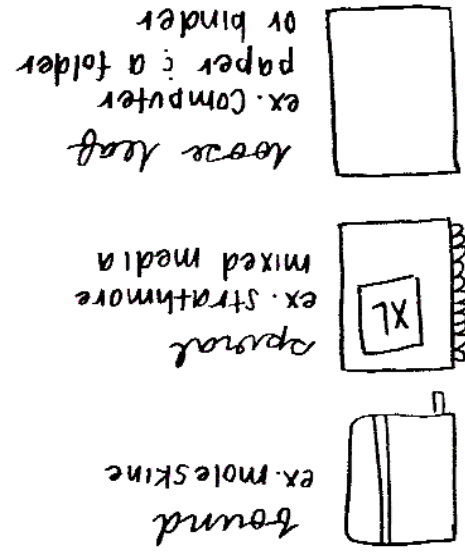 bound
ex. moleskine
XL
spiral
ex. strathmore
mixed media
loose leaf
ex. computer
paper & a folder
or binder